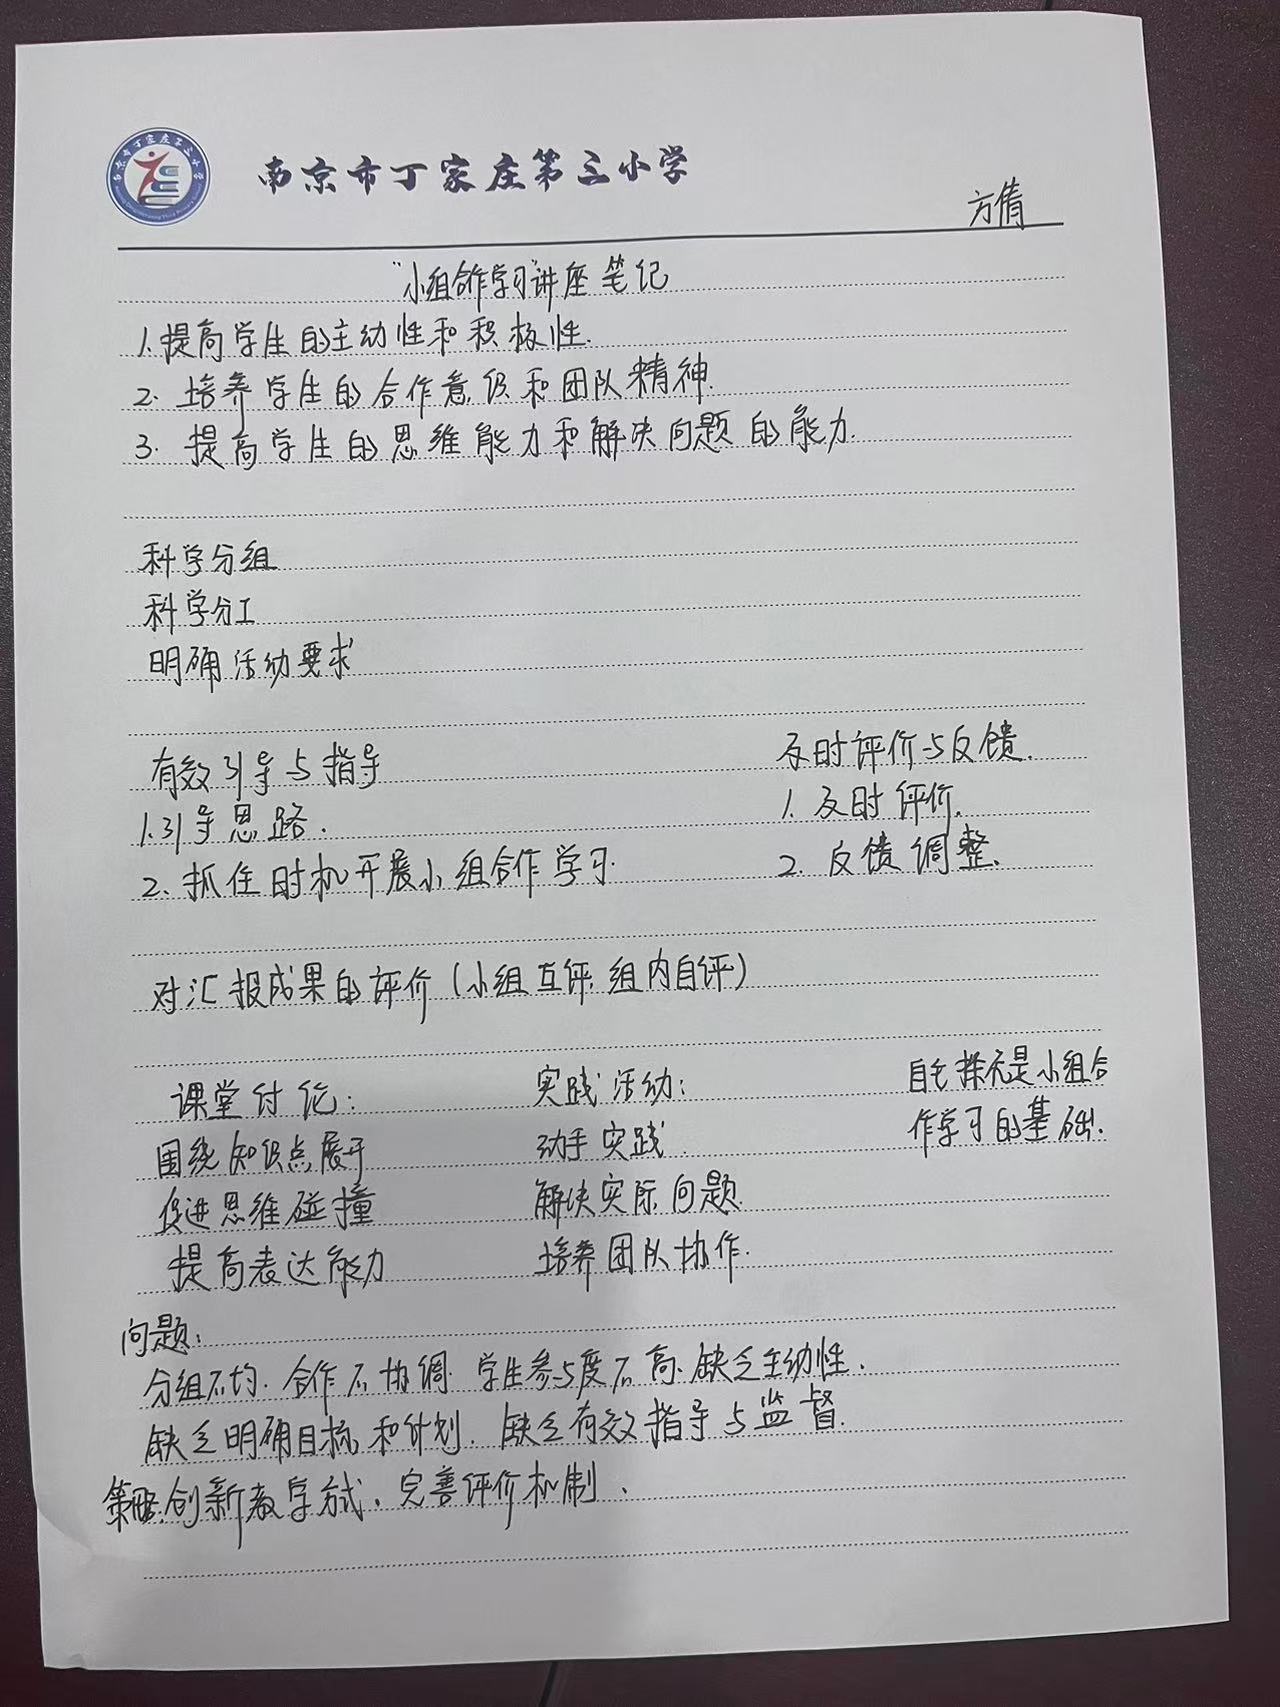 南京市丁家庄第三小学
方倩
"小组合作学习"讲座笔记
1.提高学生的主动性和积极性.
2. 培养学生的合作意识和团队精神.
3. 提高学生的思维能力和解决问题的能力.
科学分组
科学分工
明确活动要求
有效引导与指导
1.引导思路.
2. 抓住时机开展小组合作学习.
及时评价与反馈.
1. 及时评价.
2. 反馈调整.
对汇报成果的评价(小组互评.组内自评)
课堂讨论:
围绕知识点展开
促进思维碰撞
提高表达能力
实践活动:
动手实践.
解决实际问题.
培养团队协作.
自主探究是小组合
作学习的基础.
问题:
分组不均. 合作不协调. 学生参与度不高. 缺乏主动性.
缺乏明确目标和计划. 缺乏有效指导与监督.
策略:创新教学方式. 完善评价机制.